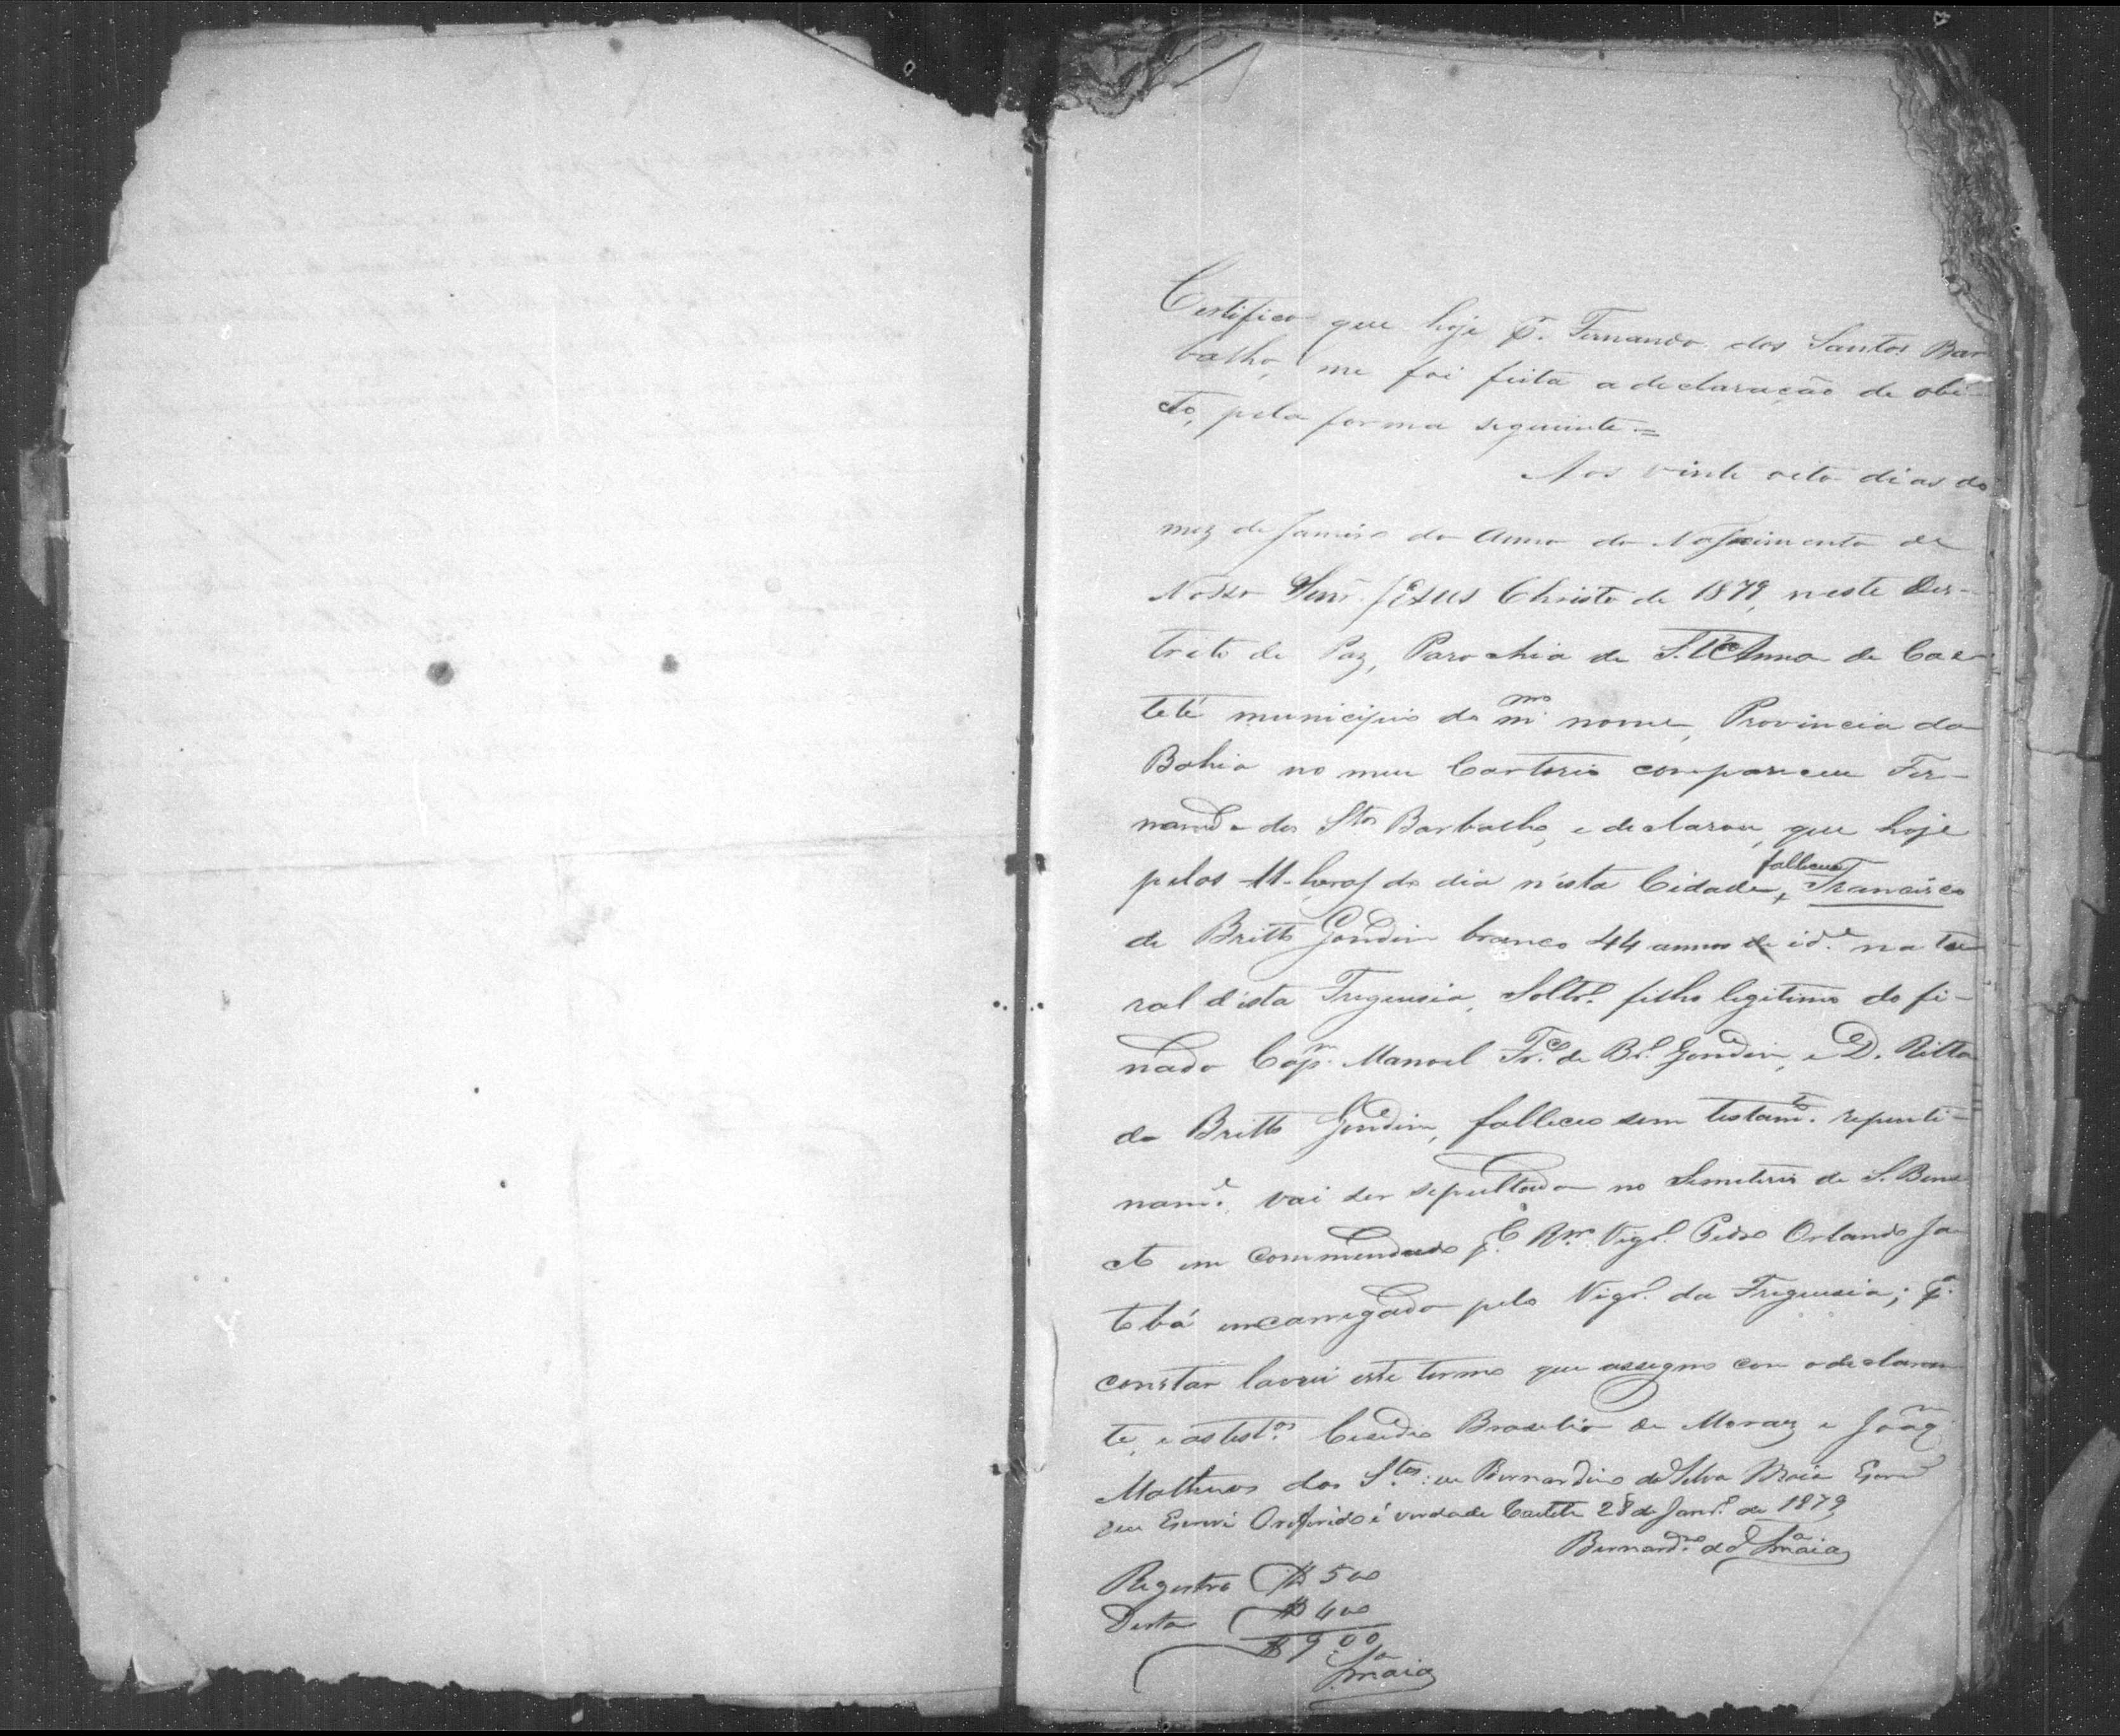 Certifico que hoje pr. Fernando dos Santos Bar
balho, me foi feita a declaração de obi-
to, pela forma seguinte =
Aos vinte oito dias do
mez de Janeiro do Anno do Nascimento de
Nosso Senr. Jesus Christo de 1879, neste Des-
trito de Paz, Parochia de S. tª Anna de Cae-
teté municipio do m.mo nome, Provincia da
Bahia no meu Cartorio compareceu Fer-
nando dos Stos Barbalho, e declarou, que hoje
pelas 11 horas do dia n'esta Cidade, falleceu Francisco
de Britto Gondim branco 44 annos de id.e natu
ral d'esta Freguesia, Soltr.o filho legitimo do fi-
nado Cap.m Manoel Fr.co de Br.to Gondim, e D. Ritta
de Britto Gondim, falleceo sem testam.to repenti-
nam.e vai ser sepultado no Semeterio de S. Bene
cto em commendado p.lo Rmo. Vigr.o Pedro Orlando Ja
tobá encarregado pelo Vigr.o da Freguesia; p.a
constar lavrei este termo que assigno com o declaran
te, e as test.as Cesidio Brasilio de Moraes e Joaq.m
Matheus dos S.tos: eu Bernardino da Silva Maia Escrm
que Escrevi O referido é verdade Caeteté 28 de Janr.o de 1879
Bernard.no da S.a Maia
Registro $ 500
Desta $ 400
$ 900
S.a Maia